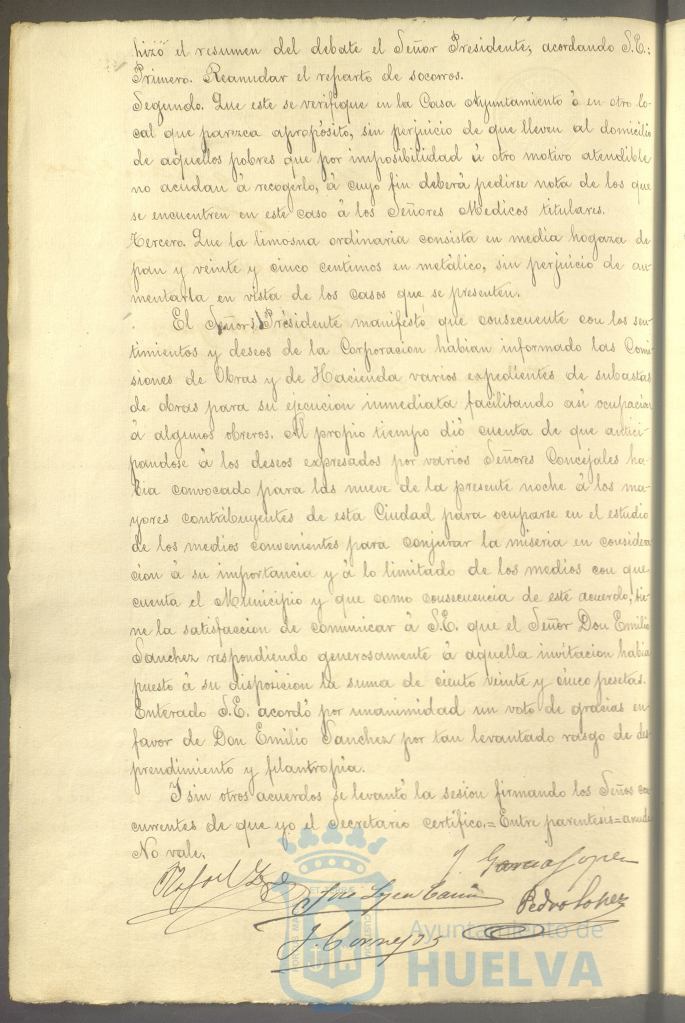 hizo el resumen del debate el Señor Presidente; acordando S.E.:
Primero. Reanudar el reparto de socorros.
Segundo. Que este se verifique en la Casa Ayuntamiento ó en otro lo-
cal que parezca apropósito, sin perjuicio de que lleven al domicilio
de aquellos pobres que por imposibilidad ú otro motivo atendible
no acudan á recogerlo, á cuyo fin deberá pedirse nota de los que
se encuentren en este caso á los Señores Medicos titulares.
Tercero. Que la limosna ordinaria consista en media hogaza de
pan y veinte y cinco centimos en metálico, sin perjuicio de au-
mentarla en vista de los casos que se presenten.
El Señor Presidente manifestó que consecuente con los sen-
timientos y deseos de la Corporacion habian informado las Comi
siones de Obras y de Hacienda varios expedientes de subastas
de obras para su ejecucion inmediata facilitando asi ocupacion
á algunos obreros. Al propio tiempo dió cuenta de que antici-
pandose á los deseos expresados por varios Señores Concejales ha-
bia convocado para las nueve de la presente noche á los ma-
yores contribuyentes de esta Ciudad para ocuparse en el estudio
de los medios convenientes para conjurar la miseria en considera
cion á su importancia y á lo limitado de los medios con que
cuenta el Municipio y que como consecuencia de este acuerdo, tie-
ne la satisfaccion de comunicar á S.E. que el Señor Don Emilio
Sanchez respondiendo generosamente á aquella invitacion habia
puesto á su disposicion la suma de ciento veinte y cinco pesetas.
Enterado S.E. acordó por unanimidad un voto de gracias en
favor de Don Emilio Sanchez por tan levantado rasgo de des
prendimiento y filantropia.
Y sin otros acuerdos se levantó la sesion firmando los Señores con
currentes de que yo el Secretario certifico.= Entre parentesis=
No vale.
Rafael
J. Garcia Lopez
Pedro Lopez
J. Cornejo
Ayuntamiento de
HUELVA